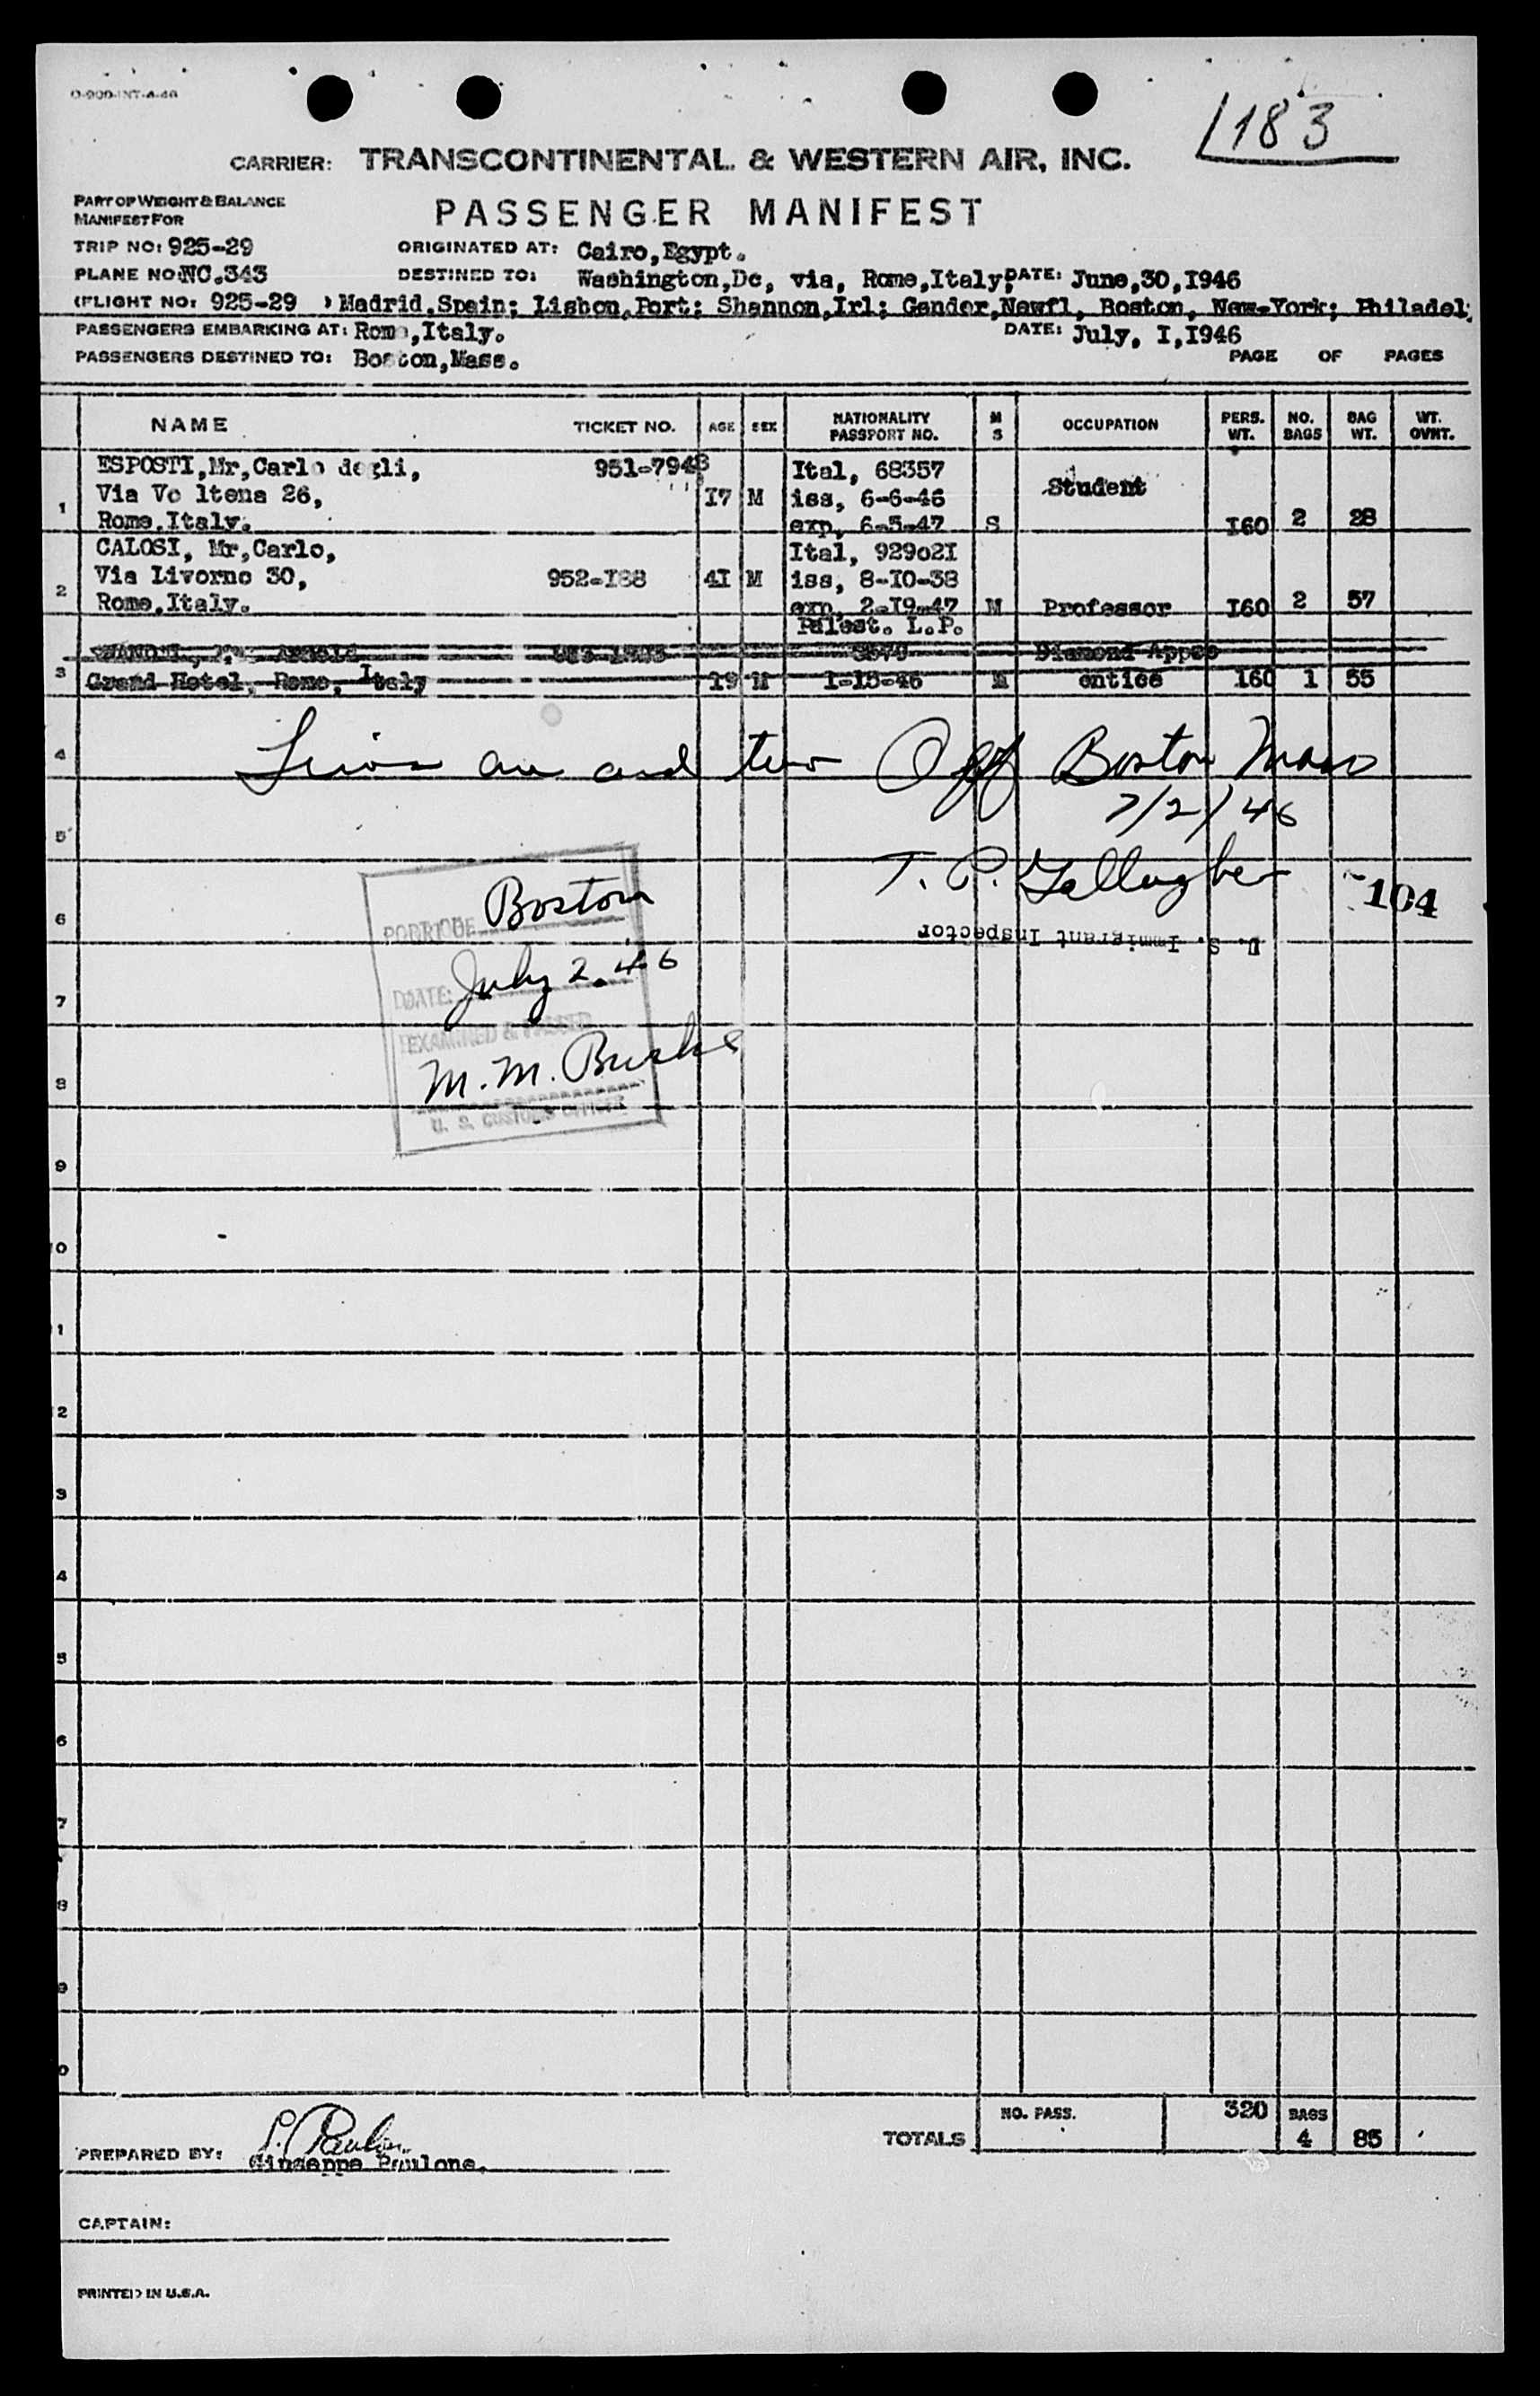 O-900-INT-4-46
183
CARRIER: TRANSCONTINENTAL & WESTERN AIR, INC.
PART OF WEIGHT & BALANCE
MANIFEST FOR
PASSENGER MANIFEST
TRIP NO: 925-29 ORIGINATED AT: Cairo,Egypt.
PLANE NO: NC.343 DESTINED TO: Washington,Dc, via, Rome,Italy; DATE: June,30,1946
(FLIGHT NO: 925-29 ) Madrid,Spain; Lisbon,Port; Shannon,Irl; Gander,Newfl, Boston, New-York; Philadel
PASSENGERS EMBARKING AT: Rome,Italy. DATE: July, I,I946
PASSENGERS DESTINED TO: Boston,Mass. PAGE OF PAGES
NAME TICKET NO. AGE SEX NATIONALITY PASSPORT NO. M S OCCUPATION PERS. WT. NO. BAGS BAG WT. WT. OVNT.
ESPOSTI,Mr,Carlo degli, 951-7948 Ital, 68357
1 Via Vo ltena 26, I7 M iss, 6-6-46 Student
Rome,Italy. exp, 6-5-47 S I60 2 28
CALOSI, Mr,Carlo, Ital, 929o2I
2 Via Livorno 30, 952-I88 4I M iss, 8-I0-38
Rome,Italy. exp, 2-I9-47 M Professor I60 2 57
Palest. L.P.
Diamond Appr
3 Grand Hotel, Rome, Italy 19 M 1-15-46 M entice 160 1 55
4 and two Off Boston Mass
5 7/2/46
T. P. Gallagher
104
6 Boston
U. S. Immigrant Inspector
7 DATE: July 2. 46
EXAMINED & PASSED
8 M. M. Burke
U. S. CUSTOMS OFFICER
9
0
1
2
3
4
5
6
7
8
9
0
TOTALS NO. PASS. 320 BAGS 4 85
PREPARED BY: Giuseppe Paulone.
CAPTAIN:
PRINTED IN U.S.A.